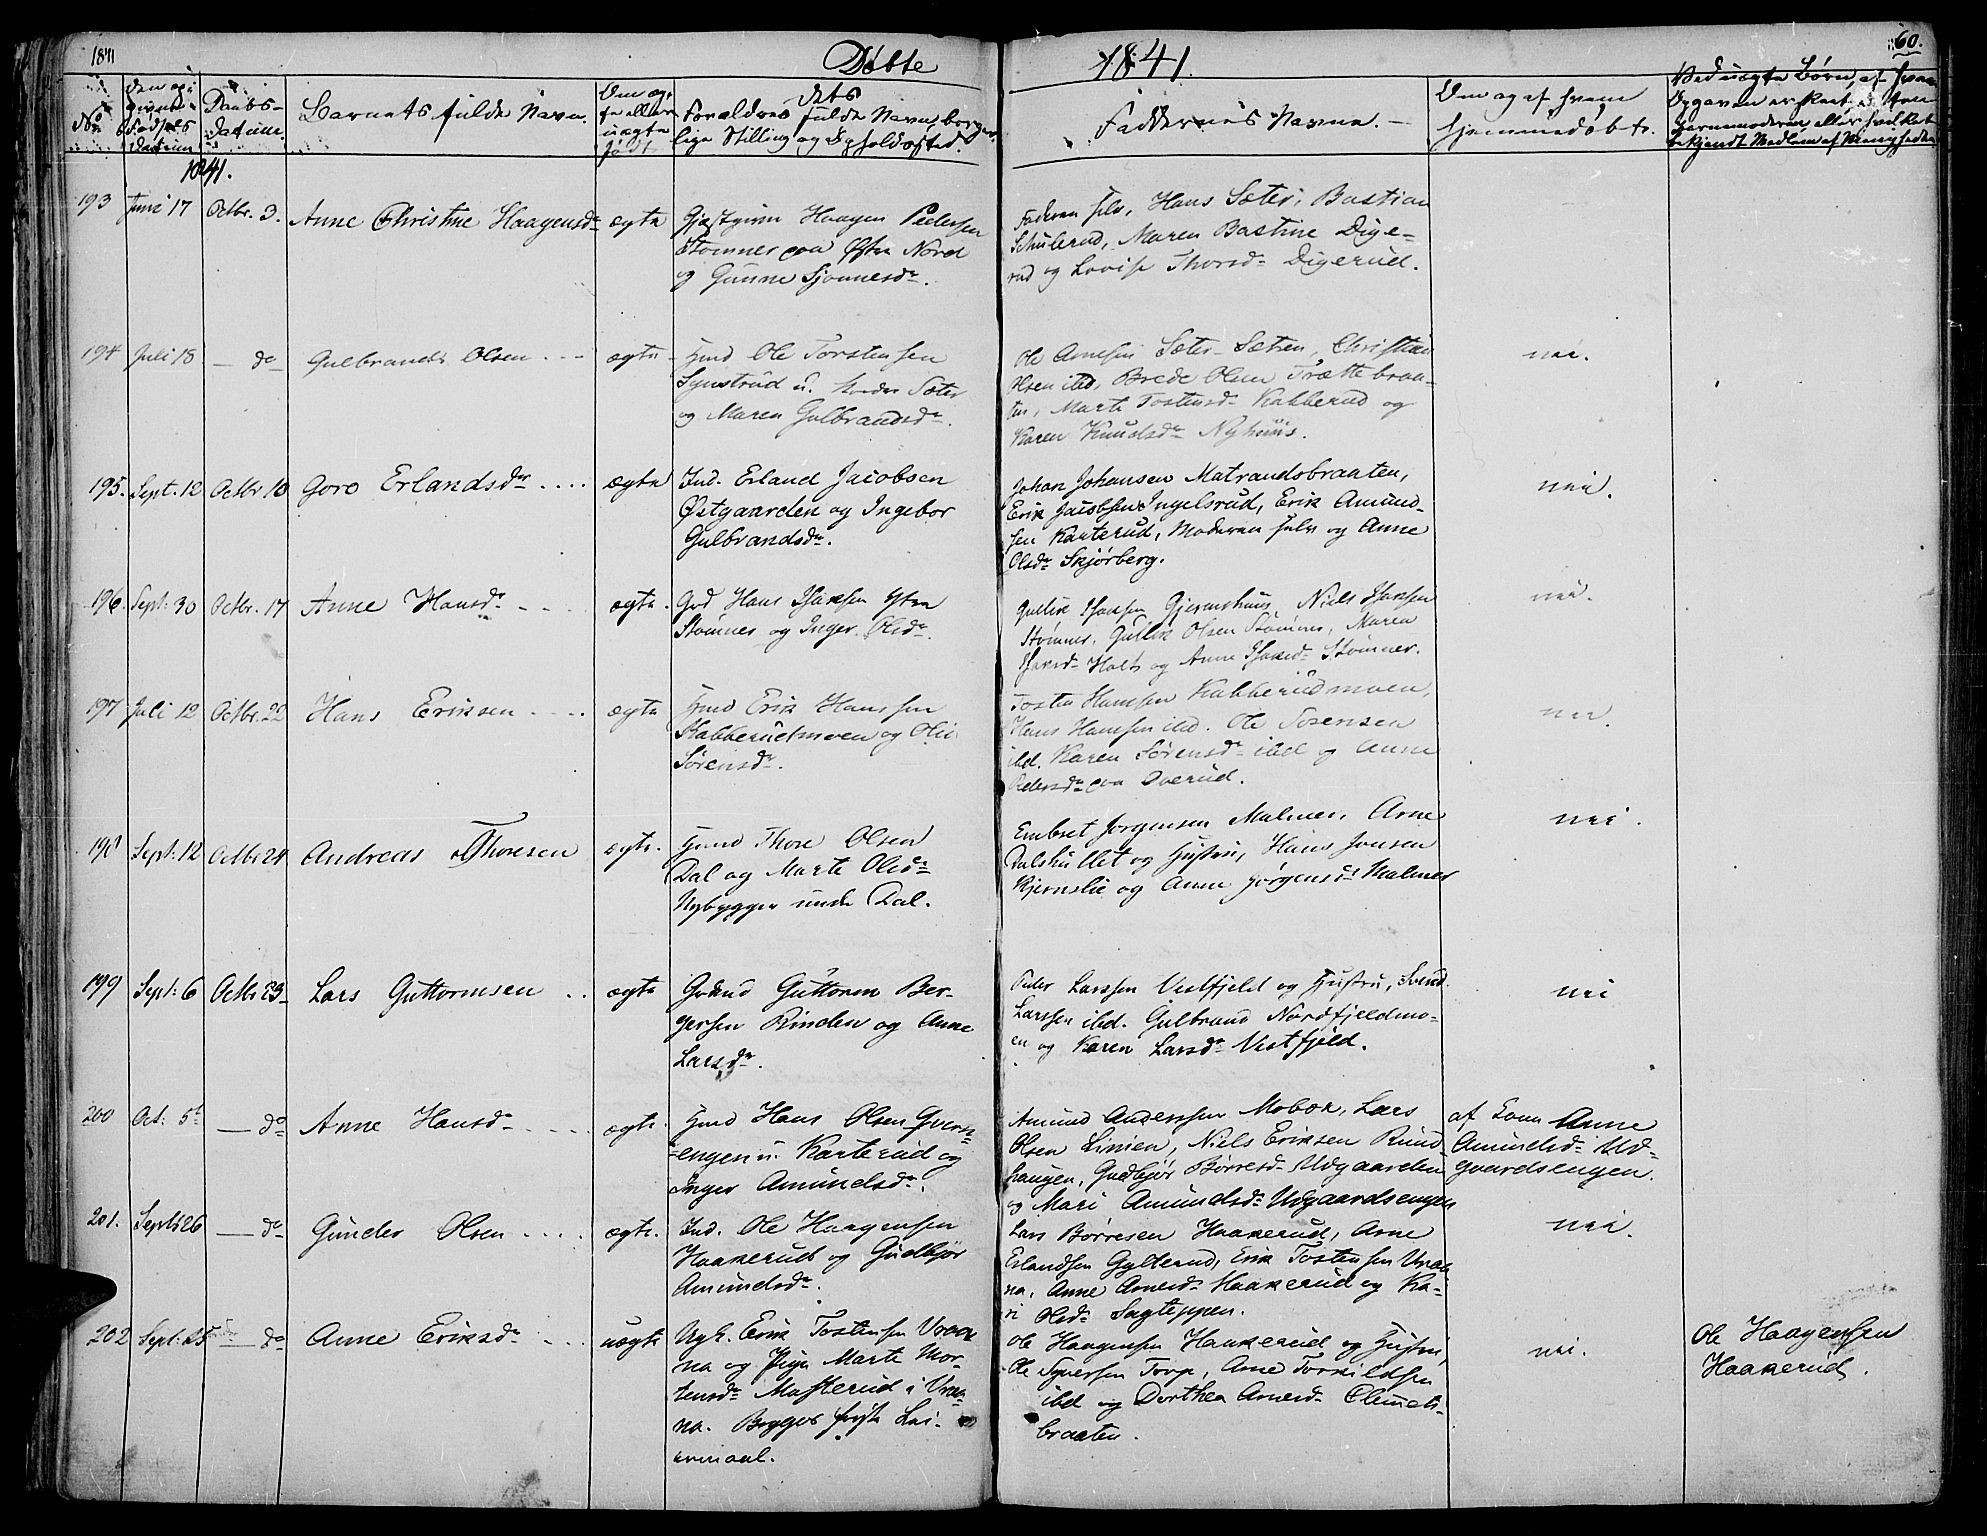 1841
Døbte
1841.
60.
No
Fødsels
Datum
Daabs-
Datum.
Barnets fulde Navn.
Om æg-
te eller
uægte
født
dets
Forældres fulde Navn, borger-
lige Stilling og Opholdssted.
Faddernes Navne. —
Om og af hvem
hjemmedøbt.
Ved uægte Børn, af hvem
Opgaven er skeet
Barnemoderen eller hvilket
bekjendt Medlem af Menigheden
1841.
193 Juni 17 Octbr. 3. Anne Christine Haagensdr ægte
Gjæstgiver Haagen Pedersen
Stømner paa Øfre Nord
og Gunne Sjønnesdr.
Faderen selv, Hans Sæter, Bastian
Schulerud, Maren Bastine Dige-
rud og Lovise Thorsdr Digerud.
194 Juli 18 — do Gulbrand Olsen ægte
Hmd Ole Torstensen
Lynstrud u. Sæter
og Maren Gulbrandsdr.
nei.
Ole Arnesen Sæter-Sætren, Christian
Olsen ibd, Brede Olsen Trættebraa-
ten, Marte Tostensdr Kabberud og
Karen Knudsdr Nyhuus.
195. Sept. 12 Octbr 10 Goro Erlandsdr ægte
Ind. Erland Jacobsen
Østgaarden og Ingebor
Gulbrandsdr.
nei.
Johan Johansen Matrandsbraaten,
Erik Jacobsen Ingelsrud, Erik Amund-
sen Karterud, Moderen selv og Anne
Olsdr Skjørberg.
196. Sept. 30 Octbr. 17 Anne Hansdr ægte.
Grd Hans Isaksen Øfre
Stømner og Inger Olsdr.
nei.
Gullik Isaksen Gjerneshaug, Niels Isaksen
Stømner, Gullik Olsen Stømner, Maren
Isaksdr Holt og Anne Isaksdr Stømner.
197 Juli 12 Octbr. 22 Hans Eriksen ægte
Hmd Erik Hanssen
Kabberudmoen og
Sørensdr.
nei.
Tosten Hanssen Kabberudmoen,
Hans Hanssen ibd. Ole Sørensen
ibd. Karen Sørensdr ibd og Anne
Pedersdr paa Overud.
198 Sept: 12 Octbr 24 Andreas Thoresen ægte.
Hmd Thore Olsen
Dal og Marte Olsdr
Nybygger under Dal.
nei.
Embret Jørgensen Malmer, Arne
Dalshullet og Hustru, Hans Jonsen
Kjernslie og Anne Jørgensdr Malmer
199 Sept: 6 Octbr Lars Guttormsen ægte
Grdmd Guttorm Ber-
gersen Rinden og Anne
Larsdr.
nei
Peder Larssen Vestfjeld og Hustru, Svend
Larssen ibd. Gulbrand Nordfjeldmo-
en og Karen Larsdr Vestfjeld.
200 Oct: 5te — do Anne Hansdr ægte.
Hmd Hans Olsen
engen u. Karterud og
Inger Amundsdr.
Amund Anderssen Mobæk, Lars
Olsen Linien, Niels Eriksen Rund-
haugen, Gudbjør Børresdr Udgaarden
og Mari Amundsdr Udgaardsengen
af Kone Anne
Amundsdr Ud-
gaardsengen.
201. Septbr 26 — do Gunder Olsen ægte.
Ind. Ole Haagensen
Haakerud og Gudbjør
Amundsdr.
nei.
Lars Børresen Haakerud, Arne
Erlandsen Gylterud, Erik Tostensen Vraa-
na, Anne Arnesdr Haakerud og Ka-
ri Olsdr Sagteppen.
202 Sept. 25 — do Anne Eriksdr uægte
Ugk. Erik Tostensen Vraa-
na og Pige Marte Mor-
tensdr Masterud i Vraa-
na. Begges første Lei-
ermaal.
nei.
Ole Haagensen Haakerud og Hustru,
Ole Syversen Torp, Arne Torkildsen
ibd og Dorthea Arnesdr Clemets-
braaten.
Ole Haagensen
Haakerud.